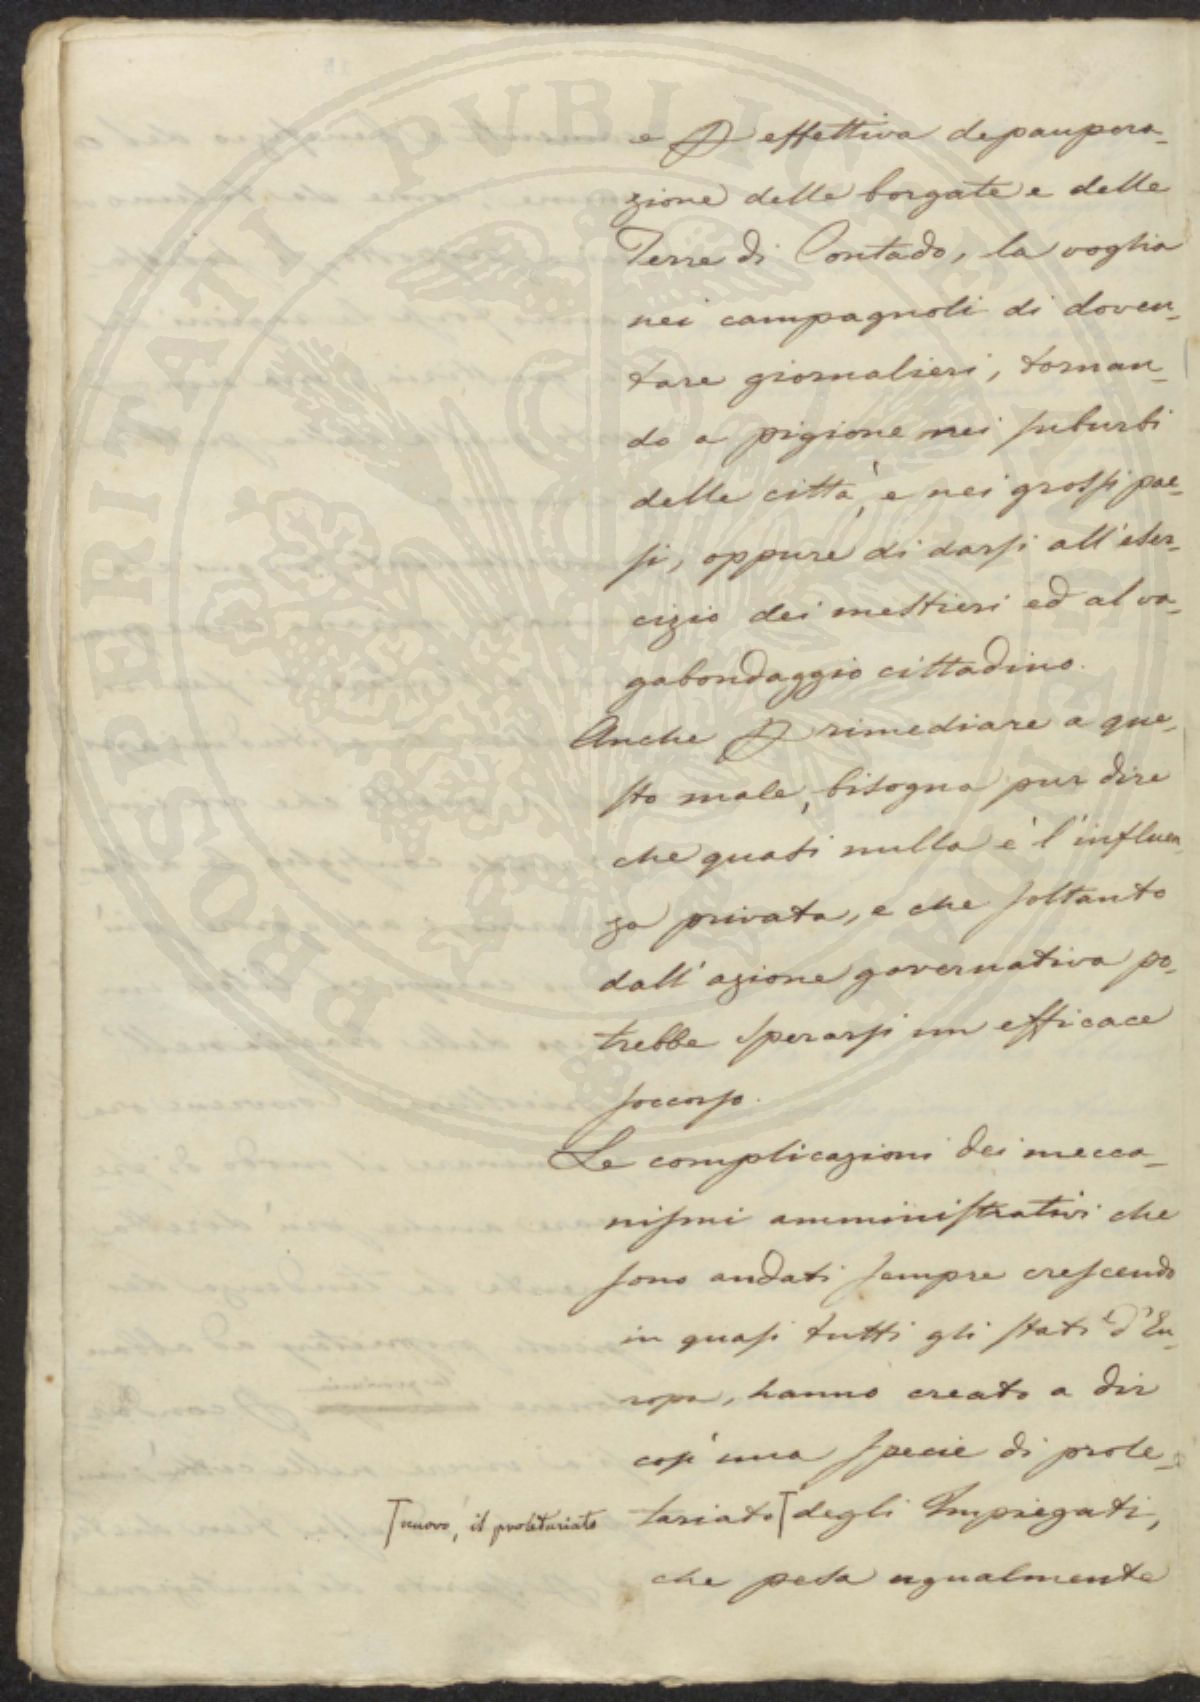 e P effettiva depaupera-
zione delle borgate e delle
Terre di Contado, la voglia
nei campagnoli di doven-
tare giornalieri, tornan-
do a pigione nei suburbi
delle città, e nei grossi pae-
si, oppure di darsi all'eser-
cizio dei mestieri ed al va-
gabondaggio cittadino.
Anche P rimediare a que-
sto male, bisogna pur dire
che quasi nulla è l'influen-
za privata, e che soltanto
dall'azione governativa po-
trebbe sperarsi un efficace
soccorso.
Le complicazioni dei mecca-
nismi amministrativi che
sono andati sempre crescendo
in quasi tutti gli stati d'Eu-
ropa, hanno creato a dir
così una specie di prole-
tariato degli Impiegati,
nuovo, il proletariato
che pesa ugualmente
PROSPERITATI PVBLICAE